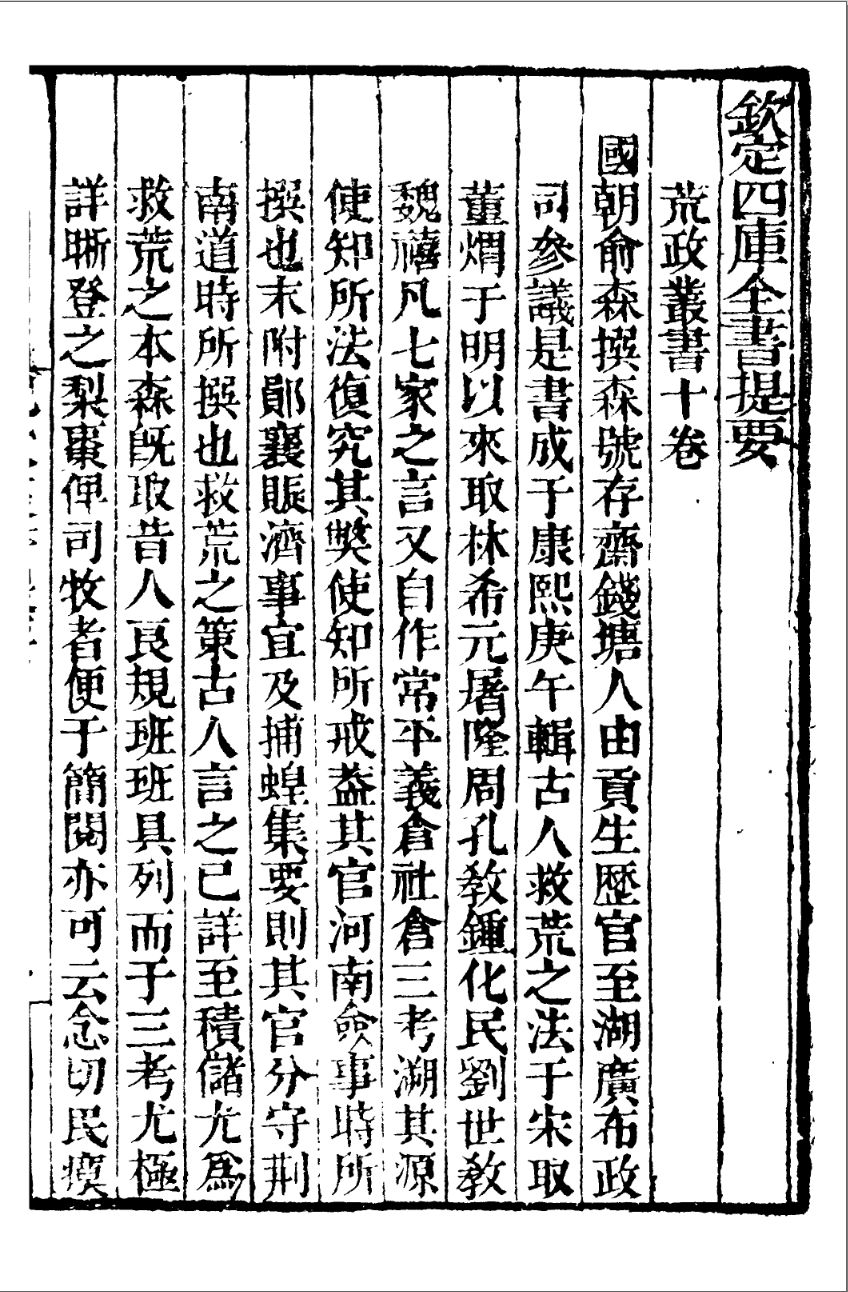 欽定四庫全書提要
荒政叢書十卷
國朝俞森撰森號存齋錢塘人由貢生歷官至湖廣布政
司參議是書成于康熙庚午輯古人救荒之法于宋取
董煟于明以來取林希元屠隆周孔教鍾化民劉世教
魏禧凡七家之言又自作常平義倉社倉三考溯其源
使知所法復究其弊使知所戒葢其官河南僉事時所
撰也末附鄖襄賑濟事宜及捕蝗集要則其官分守荆
南道時所撰也救荒之策古人言之已詳至積儲尤爲
救荒之本森旣取昔人良規班班具列而于三考尤極
詳晰登之梨棗俾司牧者便于簡閱亦可云念切民瘼